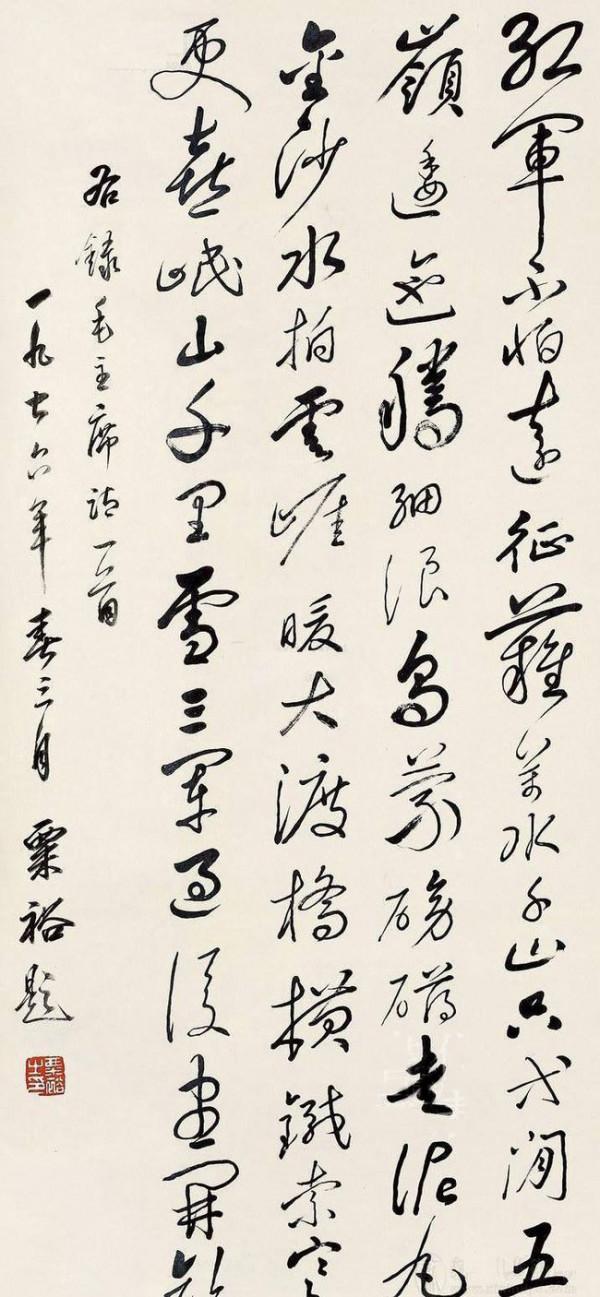 紅軍不怕遠征難萬水千山只等閒五
嶺逶迤騰細浪烏蒙磅礴走泥丸
金沙水拍雲崖暖大渡橋橫鐵索寒
更喜岷山千里雪三軍過後盡開顏
右錄毛主席詩一首
一九七六年春三月 粟裕題
粟裕之印